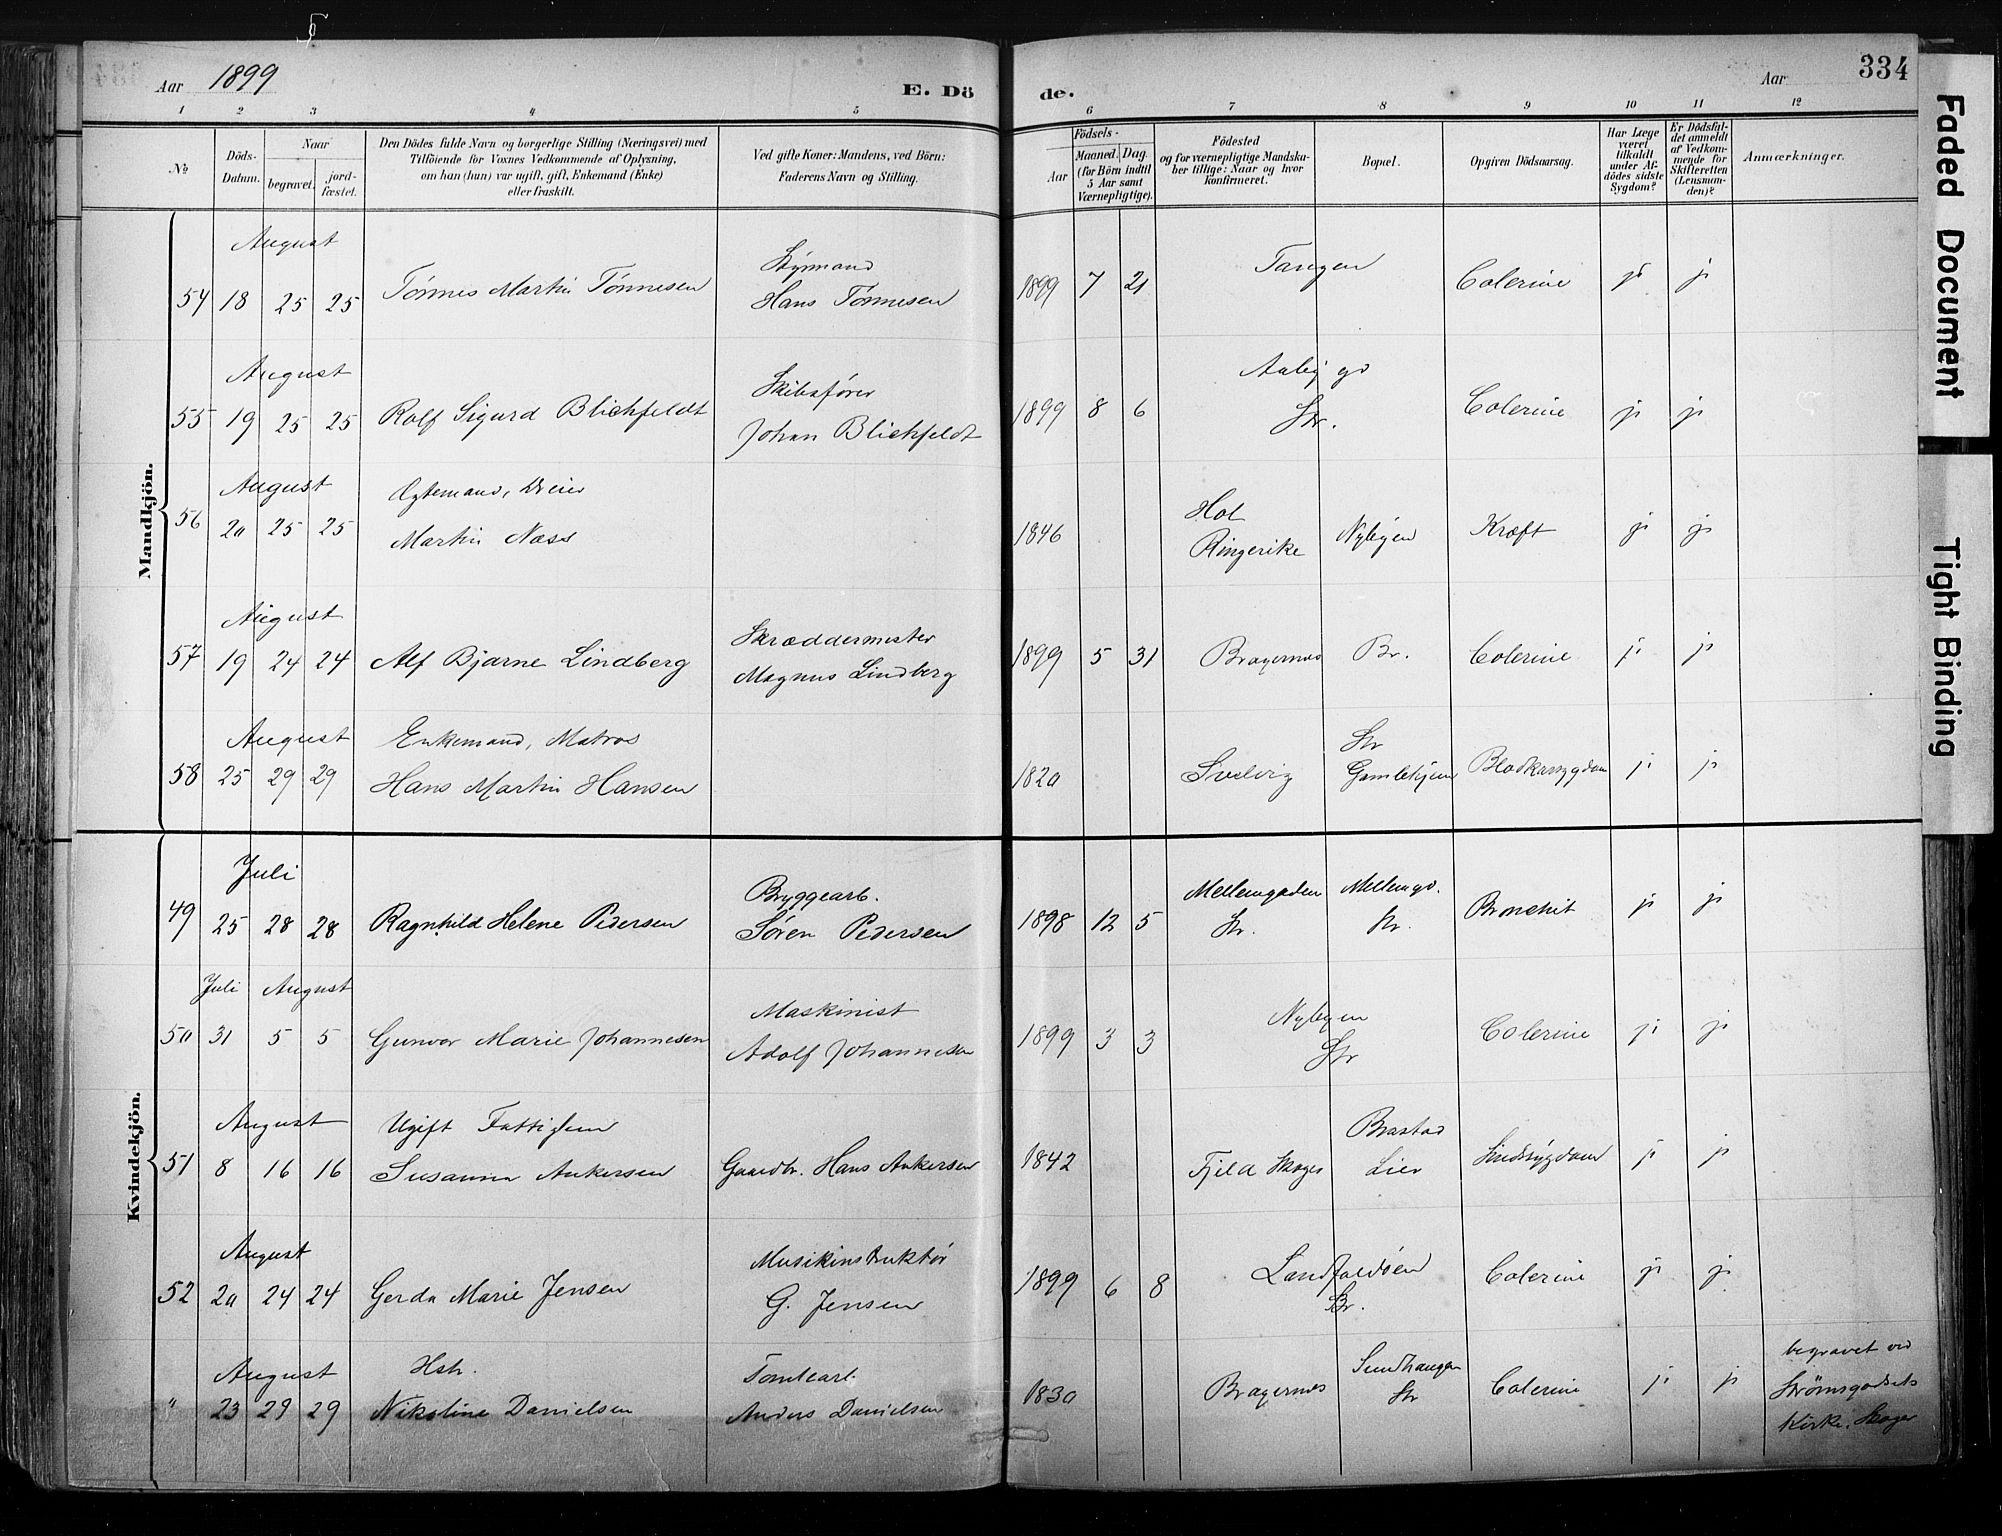 Aar 1899
E. Döde.
Aar
334
1 2 3 4 5 6 7 8 9 10 11 12
№
Döds-Datum.
Naar
begravet.
jordfæstet.
Den Dödes fulde Navn og borgerlige Stilling (Næringsvei) med
Tilföiende for Voxnes Vedkommende af Oplysning,
om han (hun) var ugift, gift, Enkemand (Enke)
eller fraskilt.
Ved gifte Koner: Mandens, ved Börn:
Faderens Navn og Stilling.
Födsels-
Aar
Maaned. Dag.
(for Börn indtil
5 Aar samt
Værnepligtige).
Födested
og for værnepligtige Mandskaber tillige: Naar og hvor
konfirmeret.
Bopæl.
Opgiven Dödsaarsag.
Har Læge været tilkaldt under Afdödes sidste Sygdom?
Er Dödsfaldet anmeldt af Vedkommende for Skifteretten (Lensmanden)?
Anmærkninger.
Mandkjön.
August
Styrmand
54 18 25 25 Tønnes Martin Tønnesen Hans Tønnesen 1899 7 21 Tangen Colerine ja ja
August
Skibsfører
Aaby gd
55 19 25 25 Rolf Sigurd Blichfeldt Johan Blichfeldt 1899 8 6 Str. Colerine ja ja
August Egtemand, Dreier
Hol
56 20 25 25 Martin Næss 1846 Ringerike Nybyen Kræft ja ja
August
Skræddermester
57 19 24 24 Alf Bjarne Lindberg Magnus Lindberg 1899 5 31 Bragernes Br. Colerine ja ja
August Enkemand, Matros
Str
58 25 29 29 Hans Martin Hansen 1820 Svelvig Gamlehjem Blodkarsygdom ja ja
Kvindekjön.
Juli
Bryggearb.
Mellemgaden Mellemgd.
49 25 28 28 Ragnhild Helene Pedersen Søren Pedersen 1898 12 5 Str. Str. Bronchit ja ja
Juli August
Maskinist
Nybyen
50 31 5 5 Gunvor Marie Johannesen Adolf Johannesen 1899 3 3 Str Colerine ja ja
August Ugift Fattiglem
Brastad
51 8 16 16 Susanna Ankersen Gaardbr. Hans Ankersen 1842 Fjeld Skoger Lier Sindssygdom ja ja
August
Musikinstruktør
52 20 24 24 Gerda Marie Jensen G. Jensen 1899 6 8 Landfaldøen Br. Colerine ja ja
August Hstr.
Tomtearb.
Sundhaugen
begravet ved
" 23 29 29 Nikoline Danielsen Anders Danielsen 1830 Bragernes Str Colerine ja ja Strømsgodsets
Kirke, Skoger
Faded Document
Tight Binding